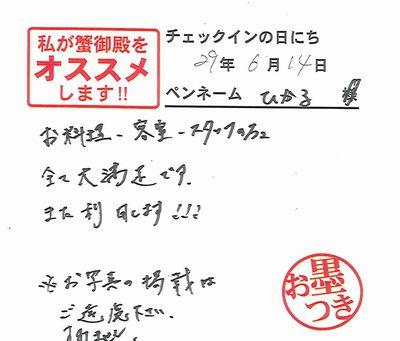 私が蟹御殿を
オススメ
します!!
チェックインの日にち
29年 6月 14日
ペンネーム ひかる 様
お料理-客室-スタッフの方
全て大満足です.
また利用します!!!
※お写真の掲載は
ご遠慮下さい.
お墨つき